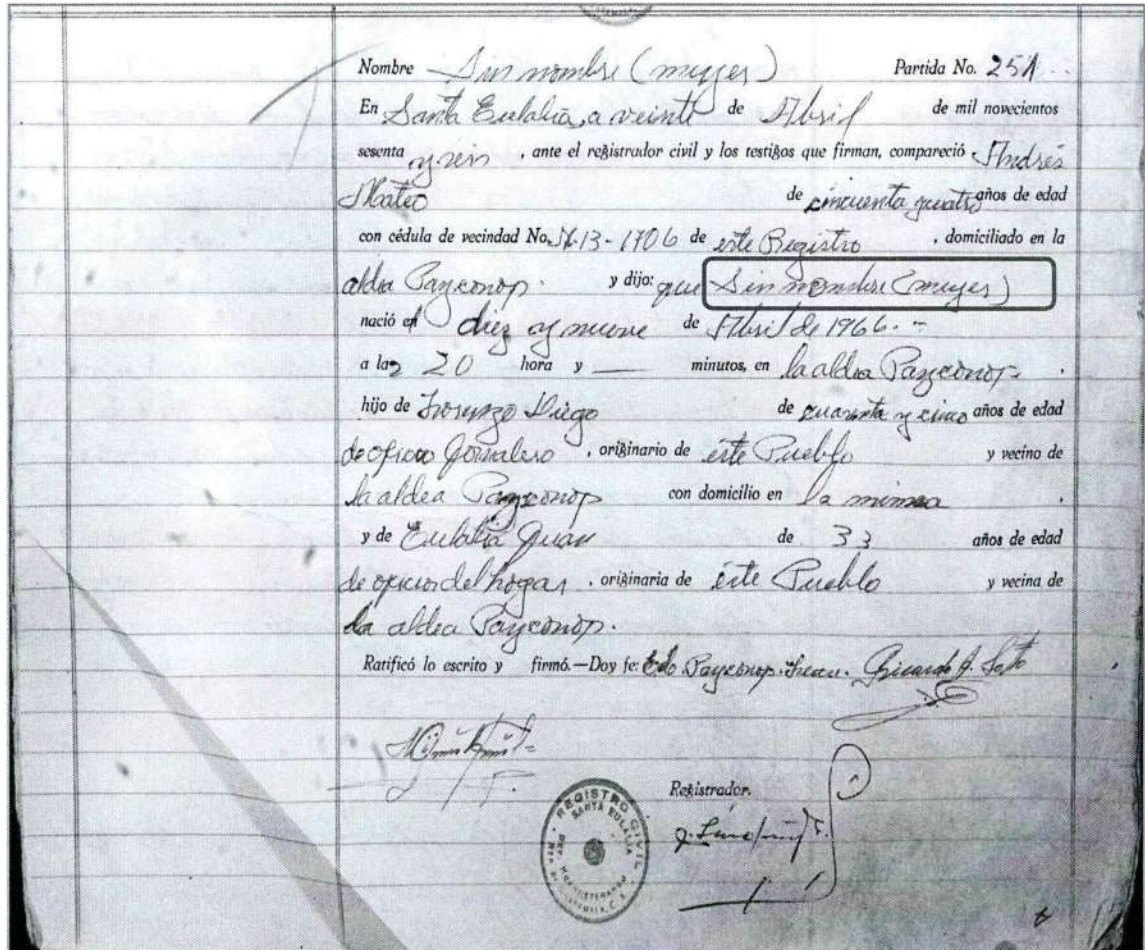 Nombre Sin nombre (mujer) Partida No. 251
En Santa Eulalia, a veinte de Abril de mil novecientos
sesenta y seis, ante el registrador civil y los testigos que firman, compareció Andrés
Mateo de cincuenta cuatro años de edad
con cédula de vecindad No. M-13-1706 de este Registro, domiciliado en la
aldea Payconop. y dijo: que Sin nombre (mujer)
nació el diez y nueve de Abril de 1966.-
a las 20 hora y — minutos, en la aldea Payconop.
hijo de Lorenzo Diego de cuarenta y cinco años de edad
de oficio Jornalero, originario de este Pueblo y vecino de
la aldea Payconop con domicilio en la misma.
y de Eulalia Juan de 33 años de edad
de oficios del hogar, originaria de éste Pueblo y vecina de
la aldea Payconop.
Ratificó lo escrito y firmó.—Doy fe: Payconop. Ricardo A. Soto
Registrador.
REGISTRO CIVIL
SANTA EULALIA
HUEHUETENANGO
GUATEMALA, C. A.